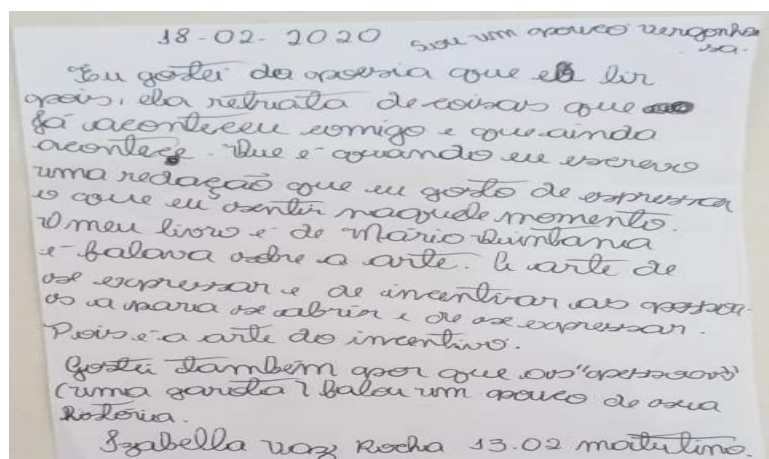 18-02-2020 Sou um pouco vergonho
sa.
Eu gostei da poesia que eu lir
pois, ela retrata de coisas que
já aconteceu comigo e que ainda
acontece. Que e quando eu escrevo
uma redação que eu gosto de espressar
o que eu sentir naquele momento.
O meu livro e de Mário Quintana
e falava sobre a arte. A arte de
se expressar e de incentivar as pessoa-
os a para se abrir e de se expressar.
Pois é a arte do incentivo.
Gostei também por que as "pessoas"
(uma garota) falou um pouco de sua
história.
Izabella vaz Rocha 13.02 matutino.